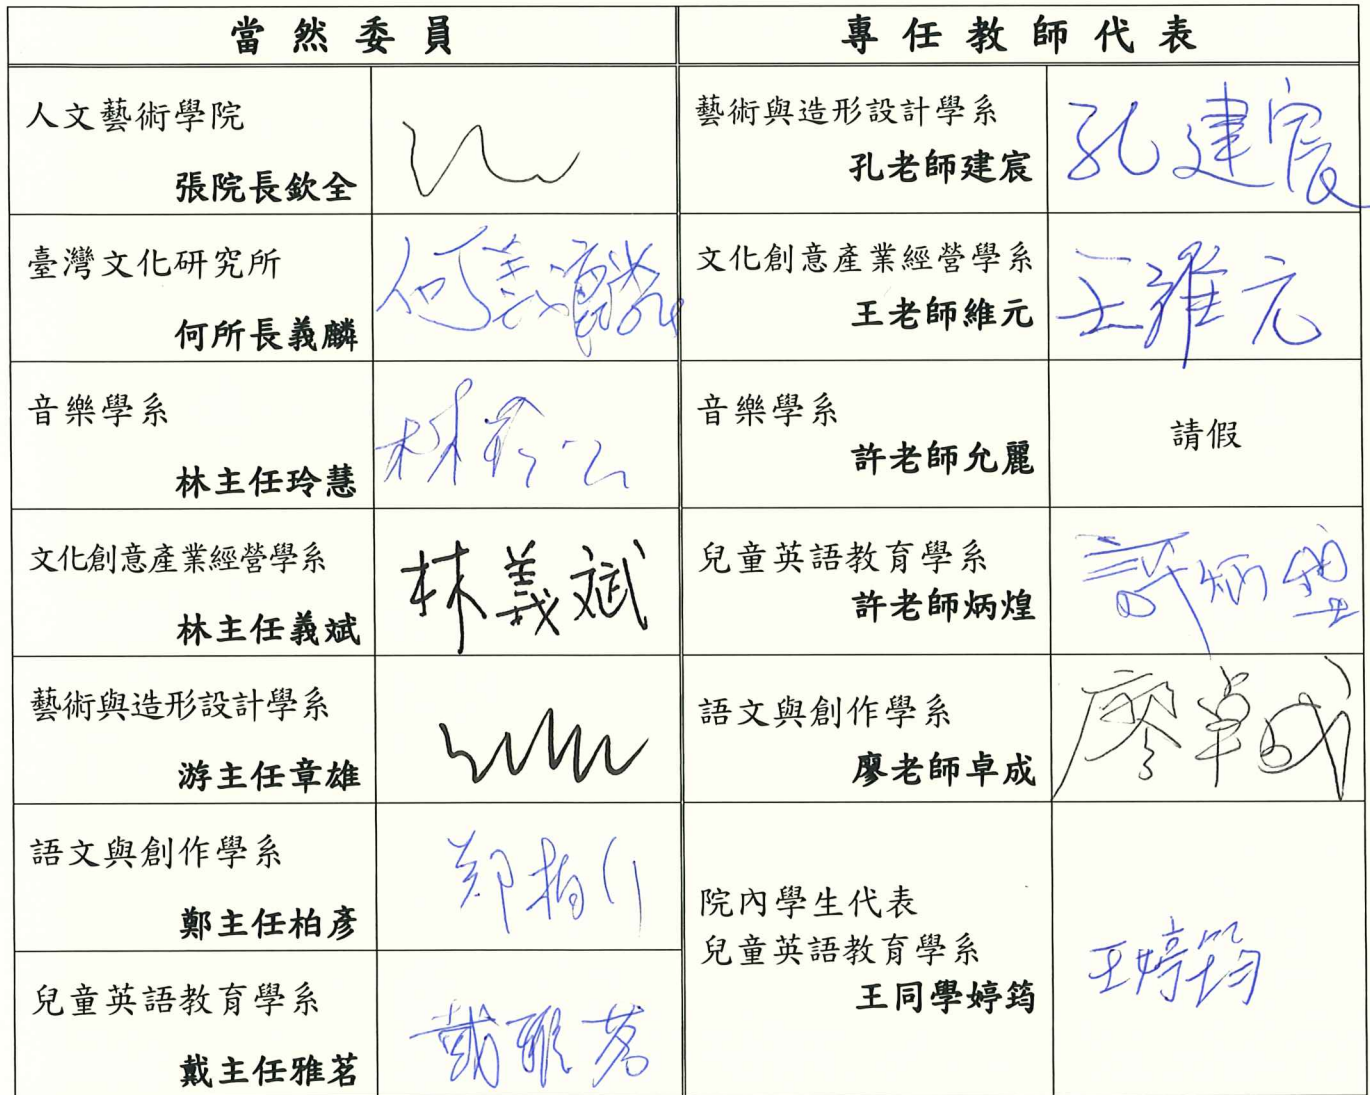 當然委員
專任教師代表
人文藝術學院
張院長欽全
藝術與造形設計學系
孔老師建宸
孔建宸
臺灣文化研究所
何所長義麟
何義麟
文化創意產業經營學系
王老師維元
王維元
音樂學系
林主任玲慧
音樂學系
許老師允麗
請假
文化創意產業經營學系
林主任義斌
林義斌
兒童英語教育學系
許老師炳煌
許炳煌
藝術與造形設計學系
游主任章雄
語文與創作學系
廖老師卓成
廖卓成
語文與創作學系
鄭主任柏彥
院內學生代表
兒童英語教育學系
王同學婷筠
王婷筠
兒童英語教育學系
戴主任雅茗
戴雅茗